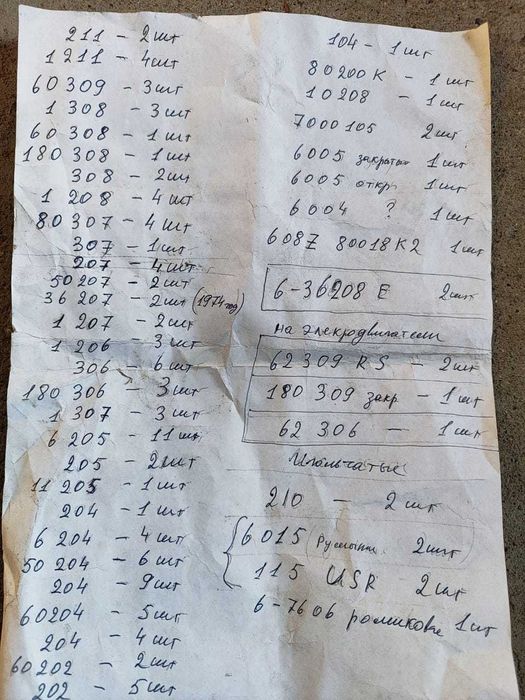 211 - 2шт
1211 - 4шт
60309 - 3шт
1308 - 3шт
60308 - 1шт
180308 - 1шт
308 - 2шт
1208 - 4шт
80307 - 4шт
307 - 1шт
207 - 4шт
50207 - 2шт
36207 - 2шт (1974год)
1207 - 2шт
1206 - 3шт
306 - 6шт
180306 - 3шт
1307 - 3шт
6205 - 11шт
205 - 2шт
11205 - 1шт
204 - 1шт
6204 - 4шт
50204 - 6шт
204 - 9шт
60204 - 5шт
204 - 4шт
60202 - 2шт
202 - 5шт
104 - 1шт
80200К - 1шт
10208 - 1шт
7000105 2шт
6005 закрытые 1шт
6005 откр 1шт
6004 ? 1шт
608Z 80018К2 1шт
6-36208 Е 2шт
на элекродвигатели
62309 RS - 2шт
180309 закр - 1шт
62306 - 1шт
Игольчатые
210 - 2шт
6015 2шт
115 USR 2шт
6-7606 роликовые 1шт